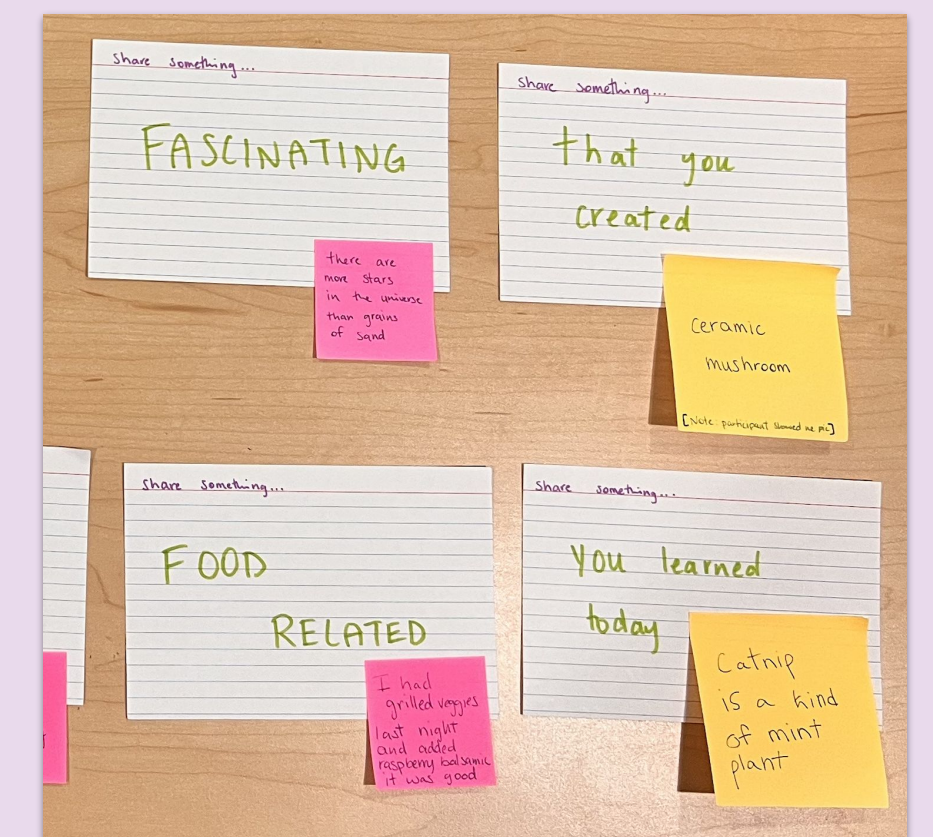 Share something...
FASCINATING
there are
more stars
in the universe
than grains
of sand
Share something...
that you
created
ceramic
mushroom
[Note: participant showed me pic]
Share something...
FOOD
RELATED
I had
grilled veggies
last night
and added
raspberry balsamic
it was good
Share something...
You learned
today
Catnip
is a kind
of mint
plant